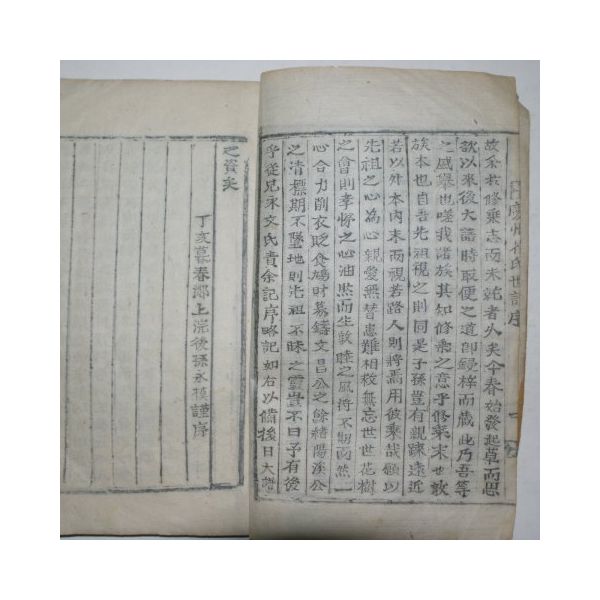 故余救修乘志而未就者久矣今春始發起草而思
欲以來後大譜時取便之道卽錄梓而藏此乃吾等
之盛擧也嗟我諸族其知修乘之意乎修乘末也敦
族本也自吾先祖視之則同是子孫豈有親踈遠近
若以外本內末而視若路人則將焉用彼乘哉願以
先祖之心爲心親愛無替患難相救無忘世世花樹
之會則孝悌之心油然而生敦睦之風將不期而然一
心合力削衣貶食鳩財募鑄文昌公之餘緖陽溪公
之淸標期不墜地則先祖不昧之靈豈不曰予有後
乎從兄永文氏責余記序略記如右以備後日大譜
之資矣
丁亥暮春 上浣後孫永模謹序
慶州 氏世譜序
一